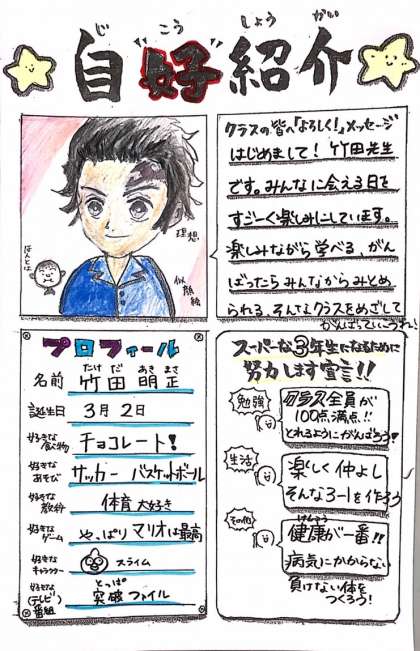 じ こう しょう かい
自"好"紹介
クラスの皆へ「よろしく!」メッセージ
はじめまして!竹田先生
です。みんなに会える日を
すごーく楽しみにしています。
楽しみながら学べる、がん
ばったらみんながらみとめ
られる、そんなクラスをめざして
がんばっていこうね!
理想
似顔絵
ほんとは
プロフィール
たけ だ あき まさ
名前 竹田 明正
誕生日 3月2日
好きな食べ物 チョコレート!
好きなあそび サッカー バスケットボール
好きな教科 体育 大好き
好きなゲーム やっぱり マリオは最高
好きなキャラクター スライム
とっぱ
好きな(テレビ)番組 突破ファイル
スーパーな3年生になるために
努力します宣言!!
勉強
クラス全員が
100点満点!!
とれるようにがんばろう!
生活
楽しく仲よし
そんな3-1を作ろう
その他
けんこう
健康が一番!!
病気にかからない
負けない体を
つくろう!